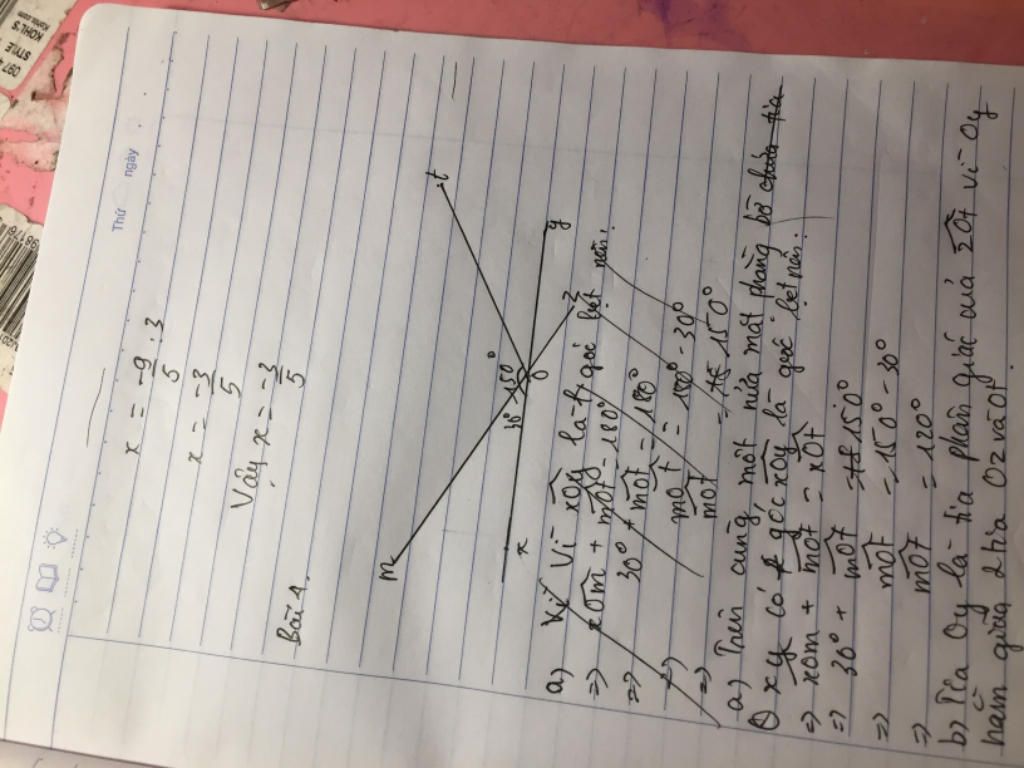 Thứ ngày
x = -9/5 : 3
x = -3/5
Vậy x = -3/5
Bài 4.
m
t
30°
150°
x
O
y
z
a) Vì Vì xOy là góc bẹt nên:
=> xOm + mOt = 180°
=> 30° + mOt = 180°
=> mOt = 180° - 30°
=> mOt = 150°
a) Trên cùng một nửa mặt phẳng bờ chứa tia
xy có góc xOy là góc bẹt nên:
=> xOm + mOt = xOt
=> 30° + mOt = 150°
=> mOt = 150° - 30°
=> mOt = 120°
b) Tia Oy là tia phân giác của zOt vì Oy
nằm giữa 2 tia Oz và Ot
KOHL'S
Kohls.com
STYLE